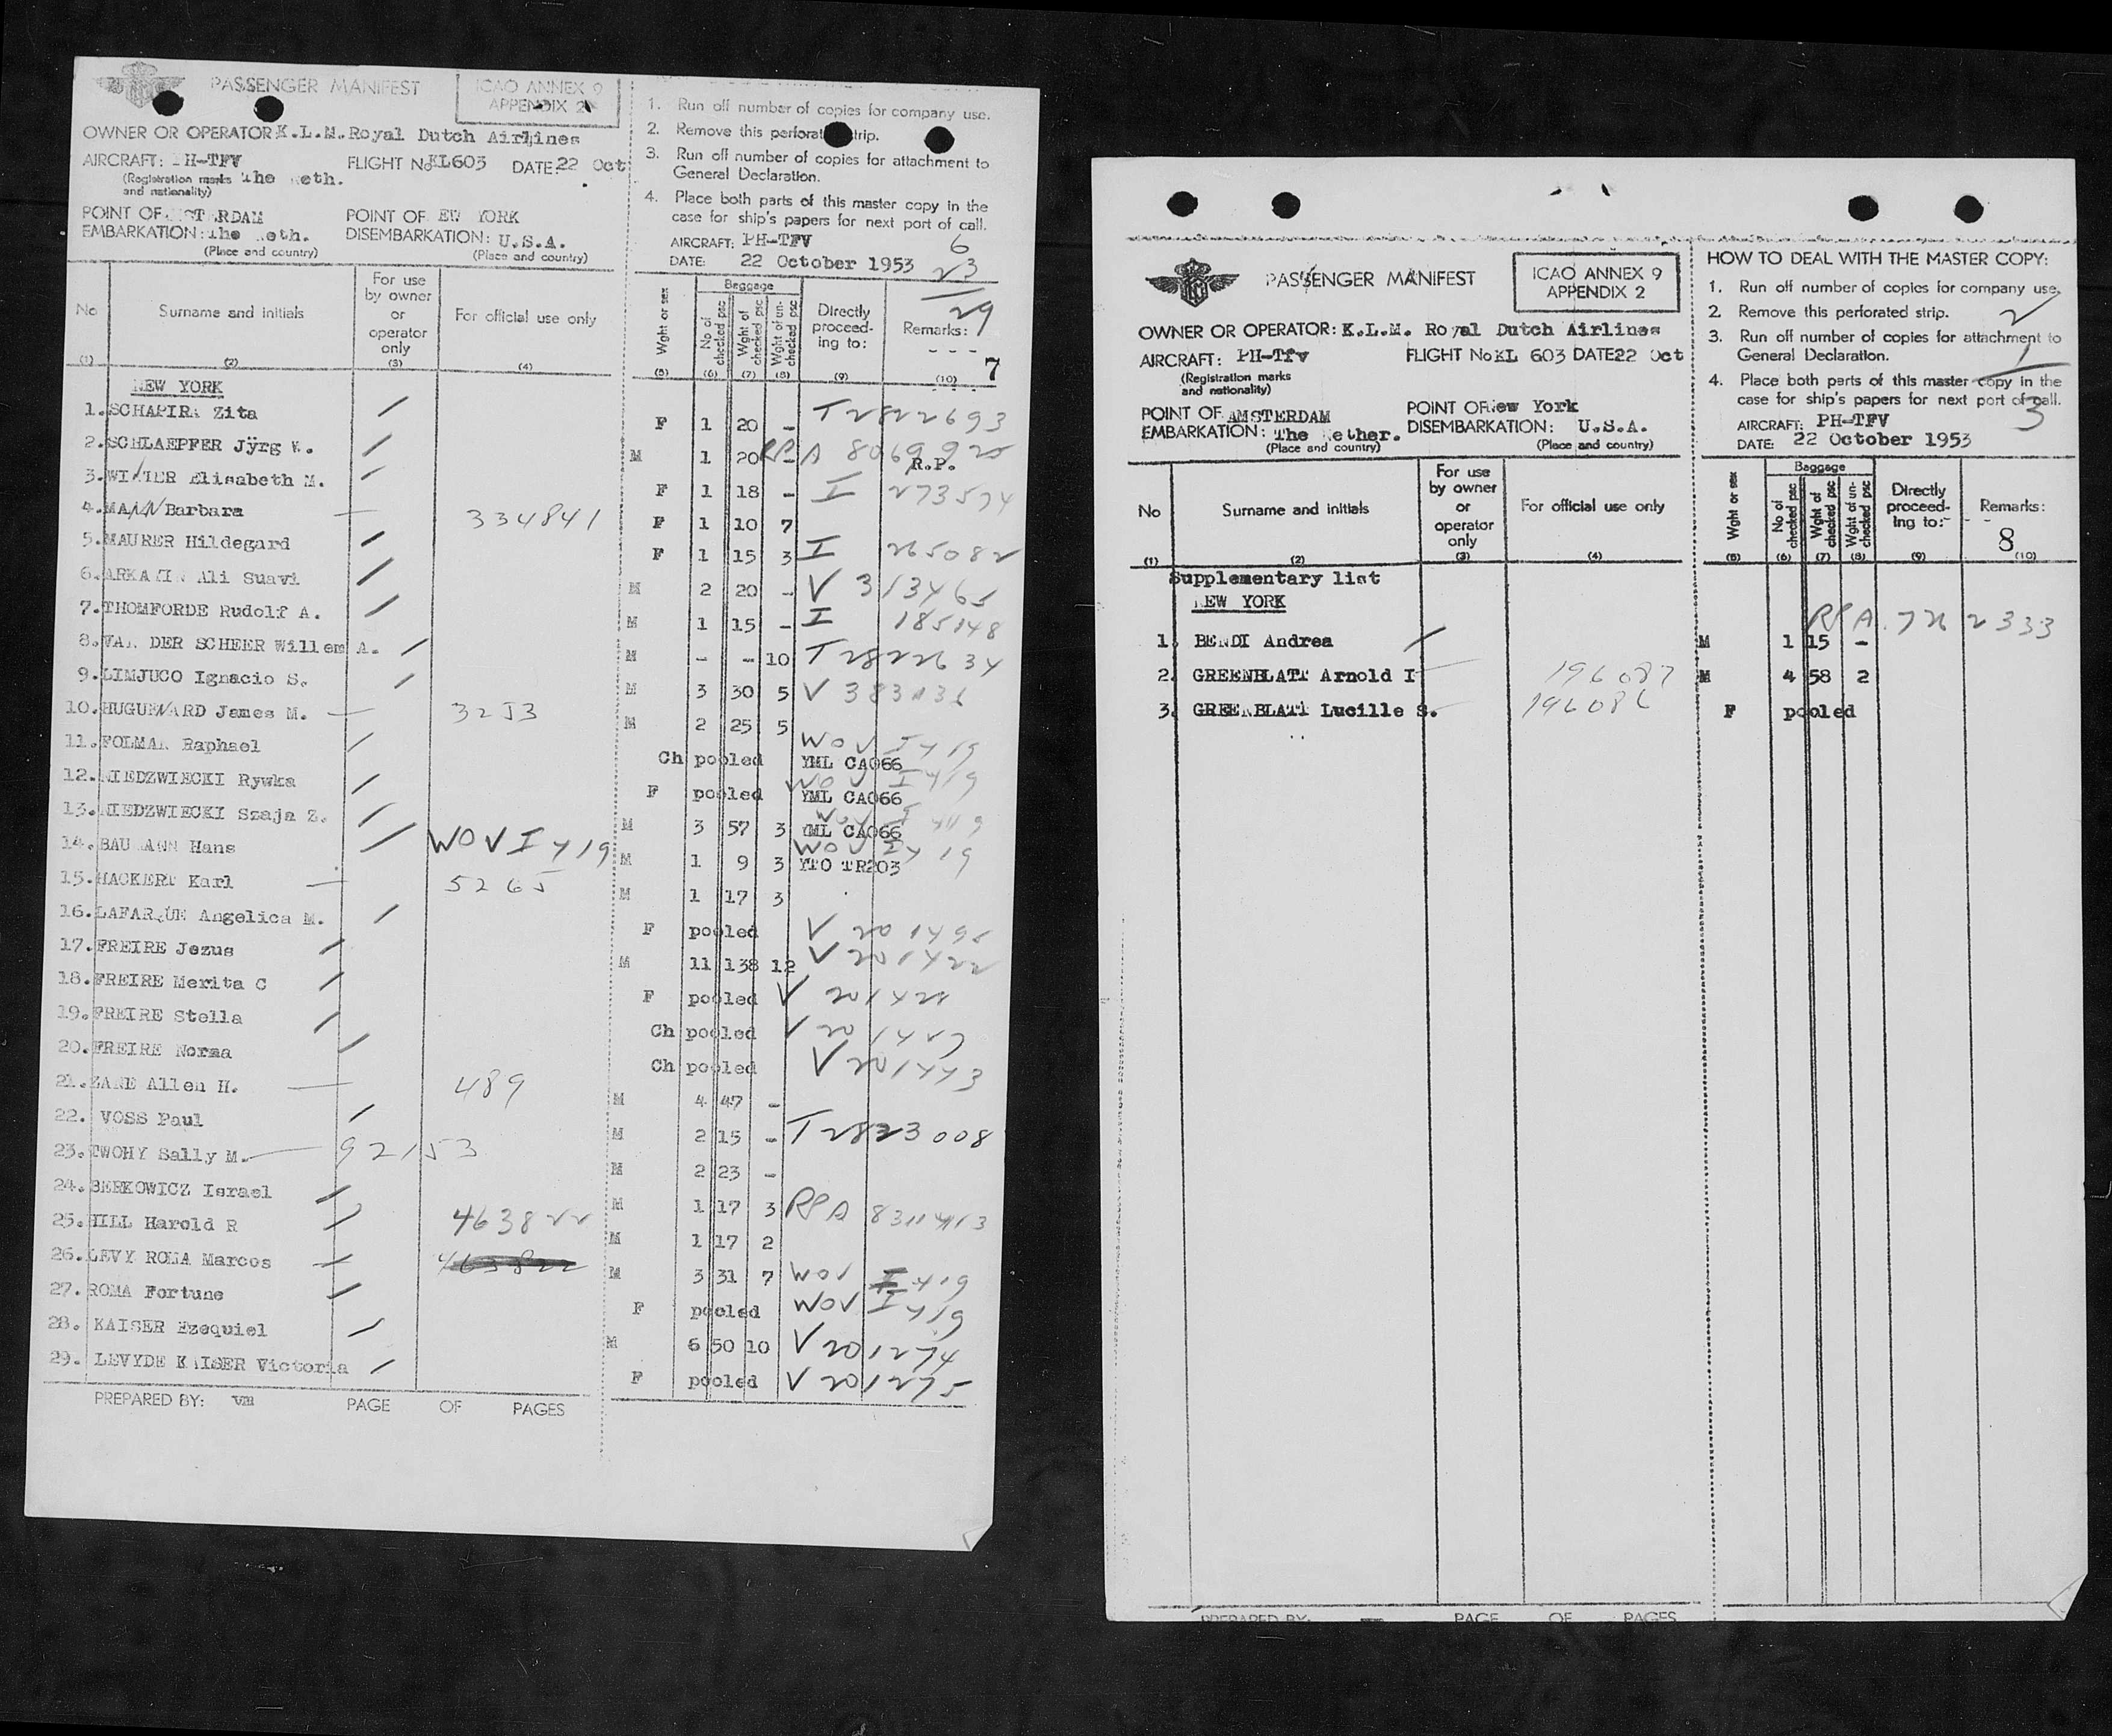 PASSENGER MANIFEST
ICAO ANNEX 9
APPENDIX 2
OWNER OR OPERATOR K.L.M. Royal Dutch Airlines
AIRCRAFT: PH-TFV FLIGHT No KL603 DATE: 22 Oct
(Registration marks and nationality) The Neth.
POINT OF AMSTERDAM POINT OF NEW YORK
EMBARKATION: The Neth. DISEMBARKATION: U.S.A.
(Place and country) (Place and country)
1. Run off number of copies for company use.
2. Remove this perforated strip.
3. Run off number of copies for attachment to
General Declaration.
4. Place both parts of this master copy in the
case for ship's papers for next port of call.
AIRCRAFT: PH-TFV 6
DATE: 22 October 1953 23
29
No Surname and initials For use by owner or operator only For official use only Wght or sex Baggage No of checked psc Wght of checked psc Wght of un-checked psc Directly proceed-ing to: Remarks:
7
(1) (2) (3) (4) (5) (6) (7) (8) (9) (10)
NEW YORK
1. SCHAPIRA Zita F 1 20 - T2822693
2. SCHLAEPFER Jÿrg W. M 1 20 - RPA 8069920 R.P.
3. WINTER Elisabeth M. F 1 18 - I 273574
4. MANN Barbara 334841 F 1 10 7
5. MAURER Hildegard F 1 15 3 I 265082
6. ARKAYIN Ali Suavi M 2 20 - V 313465
7. THOMFORDE Rudolf A. M 1 15 - I 185148
8. VAN DER SCHEER Willem A. M - - 10 T2822634
9. LIMJUCO Ignacio S. M 3 30 5 V 383836
10. HUGUENARD James M. 3253 M 2 25 5
11. FOLMAN Raphael Ch pooled YML CA066 WOV I419
12. NIEDZWIECKI Rywka F pooled YML CA066 WOV I419
13. NIEDZWIECKI Szaja Z. M 3 57 3 YML CA066 WOV I419
14. BAUMANN Hans WOV I 419 M 1 9 3 YTO TR203 WOV I419
15. HACKERT Karl 5265 M 1 17 3
16. LAFARQUE Angelica M. F pooled V 201495
17. FREIRE Jezus M 11 138 12 V 201422
18. FREIRE Merita C F pooled V 201421
19. FREIRE Stella Ch pooled V 201429
20. FREIRE Norma Ch pooled V 201443
21. ZANE Allen H. 489 M 4 47 -
22. VOSS Paul M 2 15 - T2823008
23. TWOHY Sally M. 92153 M 2 23 -
24. BERKOWICZ Israel M 1 17 3 RPA 8311413
25. HILL Harold R 463822 M 1 17 2
26. LEVY ROMA Marcos 463822 M 3 31 7 WOV I 419
27. ROMA Fortune F pooled WOV I 419
28. KAISER Ezequiel M 6 50 10 V 201274
29. LEVYDE KAISER Victoria F pooled V 201275
PREPARED BY: VM PAGE OF PAGES
PASSENGER MANIFEST
ICAO ANNEX 9
APPENDIX 2
OWNER OR OPERATOR: K.L.M. Royal Dutch Airlines
AIRCRAFT: PH-Tfv FLIGHT No KL 603 DATE 22 Oct
(Registration marks and nationality)
POINT OF AMSTERDAM POINT OF New York
EMBARKATION: The Nether. DISEMBARKATION: U.S.A.
(Place and country) (Place and country)
HOW TO DEAL WITH THE MASTER COPY:
1. Run off number of copies for company use.
2. Remove this perforated strip. 2
3. Run off number of copies for attachment to
General Declaration. 1
4. Place both parts of this master copy in the
case for ship's papers for next port of call.
AIRCRAFT: PH-TFV 3
DATE: 22 October 1953
No Surname and initials For use by owner or operator only For official use only Wght or sex Baggage No of checked psc Wght of checked psc Wght of un-checked psc Directly proceed-ing to: Remarks:
8
(1) (2) (3) (4) (5) (6) (7) (8) (9) (10)
Supplementary list
NEW YORK
1. BENDI Andrea M 1 15 - RPA 7262333
2. GREENBLATT Arnold I 196087 M 4 58 2
3. GREENBLATT Lucille S. 196086 F pooled
PREPARED BY: PAGE OF PAGES